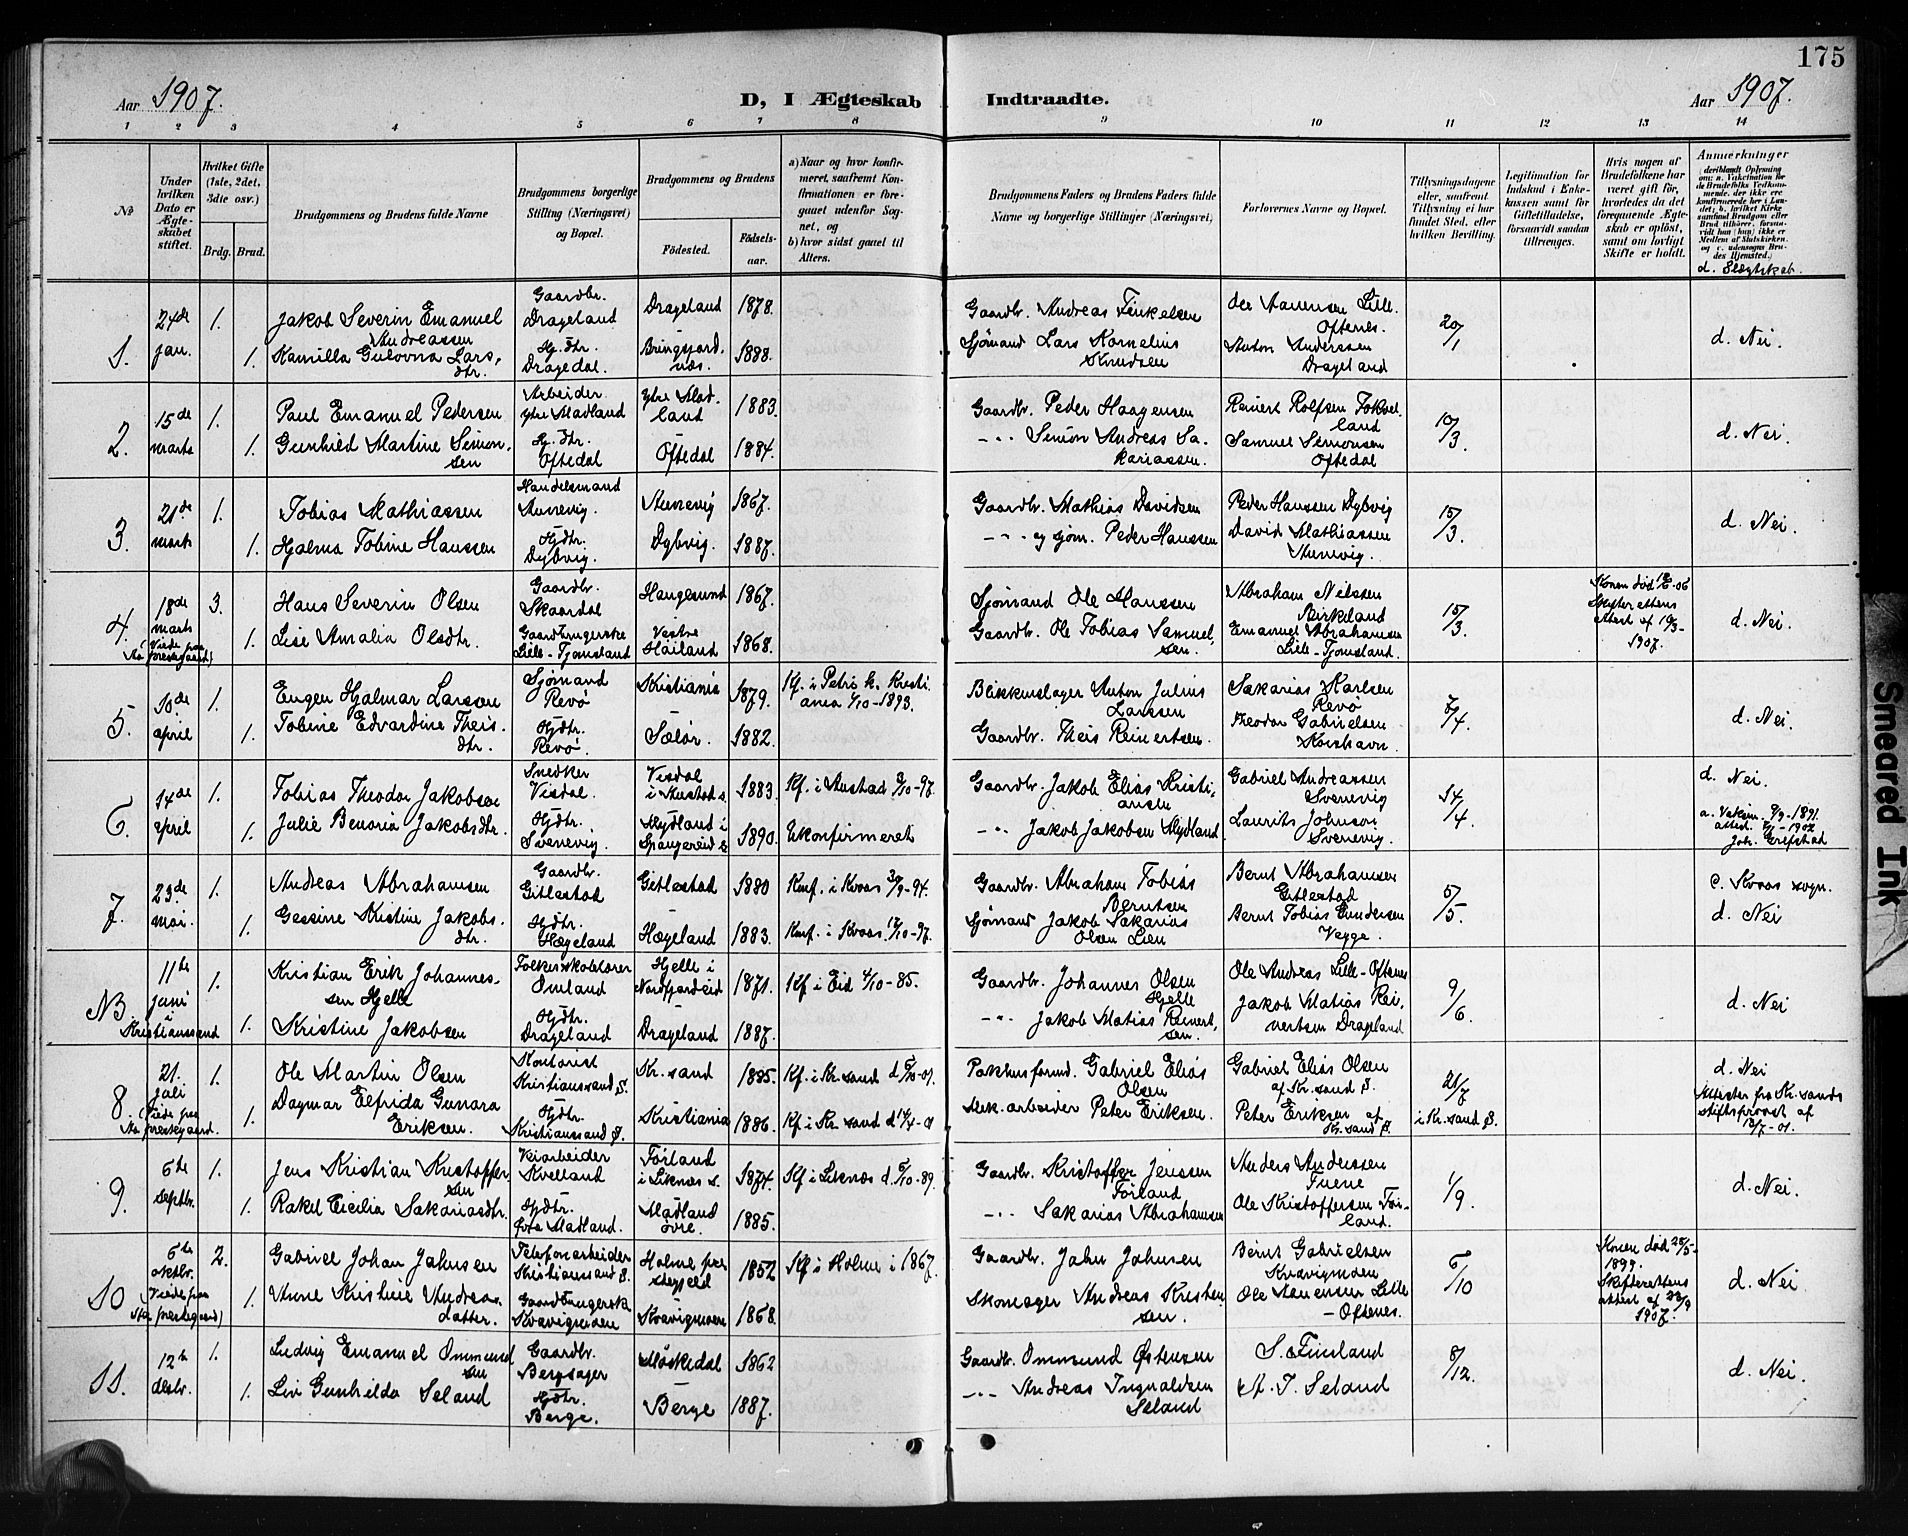 175
Aar 1907.
D, I Ægteskab
Indtraadte.
Aar 1907.
1 2 3 4 5 6 7 8 9 10 11 12 13 14
No
Under hvilken Dato er Ægteskabet stiftet.
Hvilket Gifte (1ste, 2det, 3die osv.)
Brdg. Brud.
Brudgommens og Brudens fulde Navne
Brudgommens borgerlige Stilling (Næringsvei) og Bopæl.
Brudgommens og Brudens
Födested.
Födselsaar.
a) Naar og hvor konfirmeret, saafremt Konfirmationen er foregaaet udenfor Sognet, og
b) hvor sidst gaaet til Alters.
Brudgommens Faders og Brudens Faders fulde Navne og borgerlige Stillinger (Næringsvei)
Forlovernes Navne og Bopæl.
Tillysningsdagene eller, saafremt Tillysning ei har fundet Sted, efter hvilken Bevilling.
Legitimation for Indskud i Enkekassen samt for Giftetilladelse, forsaavidt saadan tiltrænges.
Hvis nogen af Brudefolkene har været gift för, hvorledes da det foregaaende Ægteskab er oplöst, samt om lovligt Skifte er holdt.
Anmerkninger
d. Slægtskab.
1. 24de jan. 1. Jakob Severin Emanuel Andreassen Gaardbr. Drageland Drageland 1878. Gaardbr. Andreas Tinkelsen Ole Aanensen Lille Oftenes. 20/1 d. Nei.
1. Kamilla Gulovna Larsdtr. Hj. dtr. Dragedal. Bringsjordnes. 1888. Sjømand Lars Kornelius Knudsen Anton Anderssen Drageland
2. 15de marts 1. Paul Emanuel Pedersen Arbeider Ytre Madland Ytre Madland 1883. Gaardbr. Peder Haagensen Reinert Rolfsen Fokseland 10/3. d. Nei.
1. Gunhild Martine Simonsen Hj. dtr. Oftedal Oftedal 1884. -"- Simon Andreas Sakariassen. Samuel Simonsen Oftedal
3. 21de marts 1. Tobias Mathiassen Handelsmand Aunevig. Aunevig 1867. Gaardbr. Mathias Davidsen Peder Hanssen Dybvig 15/3. d. Nei.
1. Hjalma Tobine Hanssen Hjdtr. Dybvig. Dybvig. 1887. -"- og sjøm. Peder Hanssen David Mathiassen Aunevig.
4. 18de marts (Viede paa Aa prestegaard) 3. Hans Severin Olsen Gaardbr. Skaardal Haugesund 1867. Sjømand Ole Hanssen Abraham Nilssen Birkeland 15/3. Konen død 06 Skifterettens attest af 1907. d. Nei.
1. Lise Amalia Olsdtr. Gaardbrugerske Lille-Tjomsland Vestre Høiland 1868. Gaardbr. Ole Tobias Samuelsen. Emanuel Abrahamsen Lille-Tjomsland.
5. 10de april 1. Eugen Hjalmar Larssen Sjømand Revø Kristiania 1879. Kf. i Petri k. Kristiania 1/10-1893. Blikkenslager Anton Julius Larssen Sakarias Karlsen Revø 7/4. d. Nei.
1. Tobine Edvardine Theisdtr. Hjdtr. Revø. Sælør. 1882. Gaardbr. Theis Reinertsen. Theodor Gabrielsen Korshavn.
6. 14de april 1. Tobias Theodor Jakobsen Snedker Visdal. Visdal i Austad s. 1883. Kf. i Austad 3/10-97. Gaardbr. Jakob Elias Kristiansen Gabriel Andreassen Svenevig 14/4. d. Nei.
1. Julie Benoria Jakobsdtr. Hjdtr. Svenevig. Mydland i Spangereid s. 1890. Ukonfirmeret -"- Jakob Jakobsen Mydland Laurits Johnsen Svenevig. a. Vaksin. 9/9-1891. attest. 1902 Joh. Grefstad
7. 23de mai. 1. Andreas Abrahamsen Gaardbr. Gitlestad Gitlestad 1880 Knf. i Kvaas 30/9-94. Gaardbr. Abraham Tobias Berntsen Bernt Abrahamsen Gitlestad 5/5. c. Kvaas sogn. d. Nei
1. Gesine Kristine Jakobsdtr. Hjdtr. Hægeland Hægeland 1883. Knf. i Kvaas 17/10-97. Sjømand Jakob Sakarias Olsen Lien Bernt Tobias Gundersen Vegge.
NB 11te juni i Kristianssand 1. Kristian Erik Johannessen Hjelle Folkeskolelærer Omland Hjelle i Nordfjordeid 1871. Kf. i Eid 4/10-85. Gaardbr. Johannes Olsen Hjelle Ole Andreas Lille-Oftenes 9/6. d. Nei
1. Kristine Jakobsen Hjdtr. Drageland Drageland 1887. -"- Jakob Matias Reinertsen. Jakob Matias Reinertsen Drageland
8. 21. juli (Viede paa Aa prestegaard. 1. Ole Martin Olsen Kontorist Kristianssand S. Kr.sand 1885. Kf. i Kr.sand d 6/10-01. Pakhusformd. Gabriel Elias Olsen Gabriel Elias Olsen af Kr.sand S. 21/7 i Kr.sand S. d. Nei Attester fra Kr.sands stiftsprovst af 13/7-07.
1. Dagmar Elfrida Gunara Eriksen. Hjdtr. Kristianssand S. Kristiania 1886. Kf. i Kr.sand d 14/4-01 Mek. arbeider Peter Eriksen. Peter Eriksen af Kr.sand S.
9. 6te septbr. 1. Jens Kristian Kristoffersen Veiarbeider Kvelland Førland i Liknes s. 1874. Kf i Liknes d. 6/10-89. Gaardbr. Kristoffer Jenssen Førland Anders Anderssen Tuene 1/9. d. Nei.
1. Rakel Cicilia Sakariasdtr. Hjdtr. øvre Madland. Madland øvre. 1885. -"- Sakarias Abrahamsen Ole Kristoffersen Førland.
10 6te oktbr. (Viede paa Aa prestegaard) 2. Gabriel Johan Jahnsen Telefonarbeider Kristianssand S. Holme prestegjeld 1852 Kf i Holme i 1867. Gaardbr. Jahn Jahnsen Bernt Gabrielsen Kvavigmoen 6/10 Konen død 25/5-1899. Skifterettens attest af 23/9 1907. d. Nei
1. Anne Kristine Andreasdatter. Gaardbrugersk Kvavigmoen Kvavigmoen 1868. Skomager Andreas Kristensen. Ole Aanensen Lille-Oftenes.
11. 12te desbr. 1. Ludvig Emanuel Ommundsen Gaardbr. Bergsager Møskedal 1862 Gaardbr. Ommund Østensen S. Finsland 8/12. d. Nei.
1. Liv Gunhilda Seland Hjdtr. Berge. Berge 1887. -"- Andreas Ingvaldsen Seland A. T. Seland
Smeared Ink